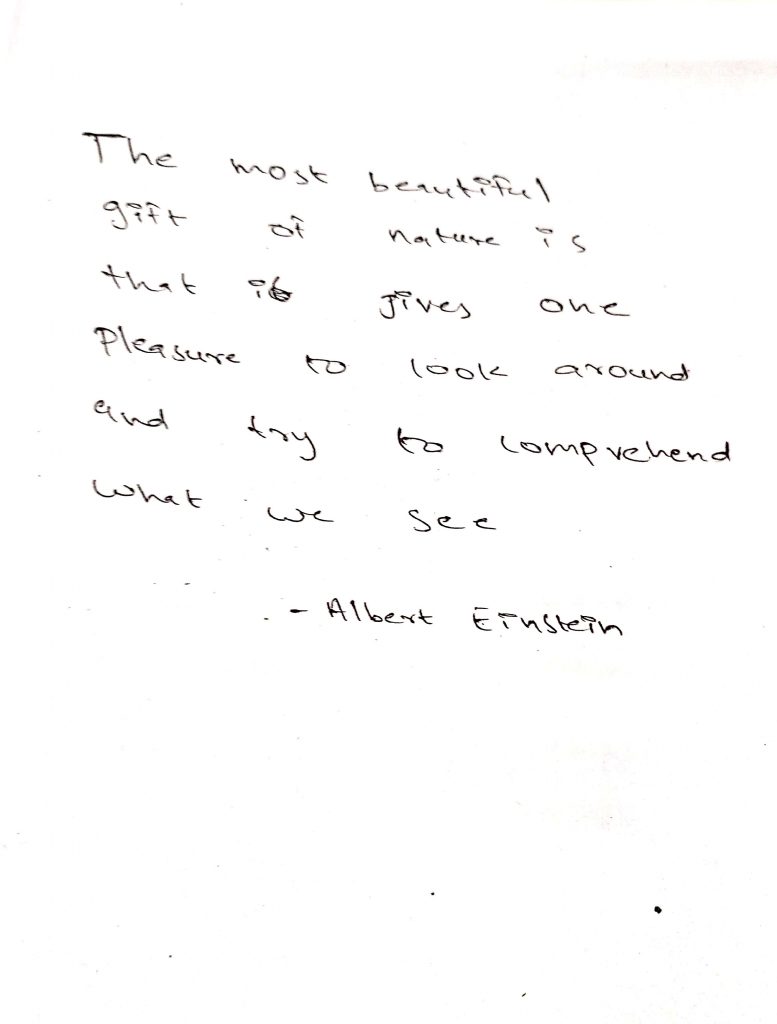 The most beautiful
gift of nature is
that it gives one
Pleasure to look around
and try to comprehend
what we see
- Albert Einstein